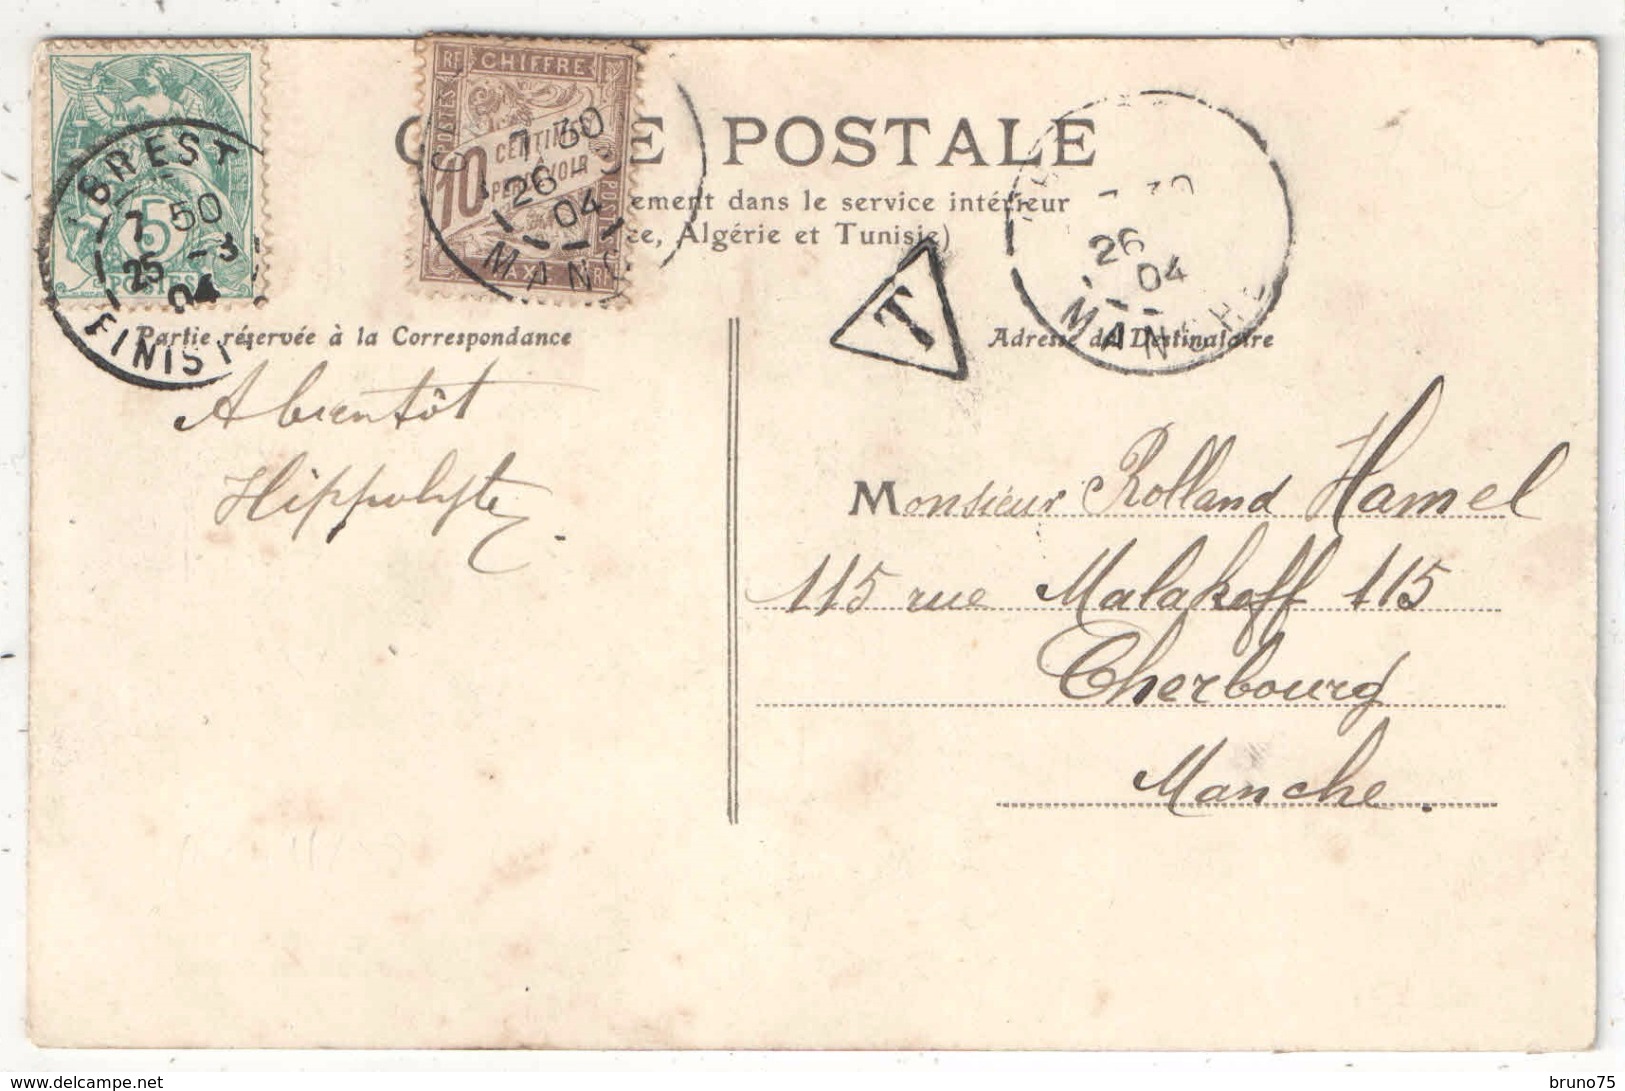 BREST
7 50
25 -3
04
FINIST
5
POSTES
RF CHIFFRE
POSTES
10 CENTIMES
A
PERCEVOIR
POSTES
TAXE RF
7 30
26
04
MANC
C E POSTALE
ement dans le service intérieur
ce, Algérie et Tunisie)
T
30
26
04
MANCHE
Partie réservée à la Correspondance
Adresse du Destinataire
A bientôt
Hippolyte
Monsieur Rolland Hamel
115 rue Malakoff 115
Cherbourg
Manche.
delcampe.net
bruno75